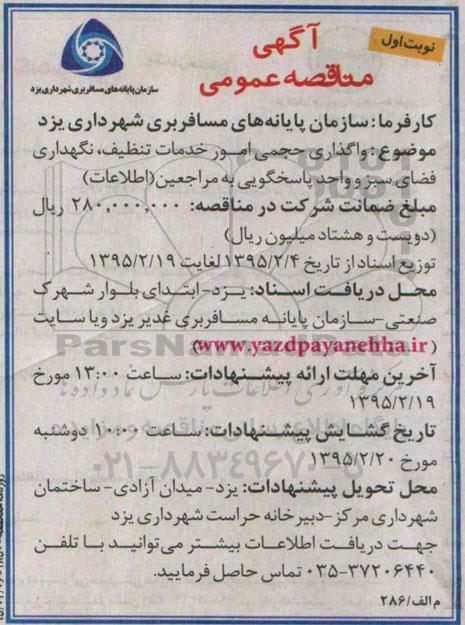 نوبت اول
آگهی
مناقصه عمومی
سازمان پایانه‌های مسافربری شهرداری یزد
کارفرما: سازمان پایانه‌های مسافربری شهرداری یزد
موضوع: واگذاری حجمی امور خدمات تنظیف، نگهداری
فضای سبز و واحد پاسخگویی به مراجعین (اطلاعات)
مبلغ ضمانت شرکت در مناقصه: ۲۸۰,۰۰۰,۰۰۰ ریال
(دویست و هشتاد میلیون ریال)
توزیع اسناد از تاریخ ۱۳۹۵/۲/۴ لغایت ۱۳۹۵/۲/۱۹
محل دریافت اسناد: یزد- ابتدای بلوار شهرک
صنعتی- سازمان پایانه مسافربری غدیر یزد و یا سایت
(www.yazdpayanehha.ir)
آخرین مهلت ارائه پیشنهادات: ساعت ۱۳:۰۰ مورخ
۱۳۹۵/۲/۱۹
تاریخ گشایش پیشنهادات: ساعت ۱۰:۰۰ دوشنبه
مورخ ۱۳۹۵/۲/۲۰
محل تحویل پیشنهادات: یزد- میدان آزادی- ساختمان
شهرداری مرکز- دبیرخانه حراست شهرداری یزد
جهت دریافت اطلاعات بیشتر می‌توانید با تلفن
۰۳۵-۳۷۲۰۶۴۴۰ تماس حاصل فرمایید.
م الف/۲۸۶
ParsNamadData
۰۲۱-۸۸۳۴۹۶۷۰-۵